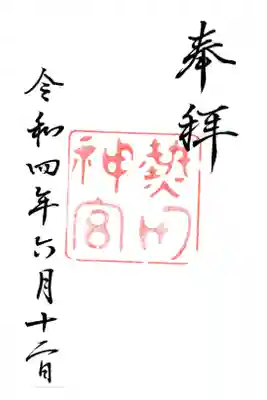 奉拝
熱田
神宮
令和四年六月十二日